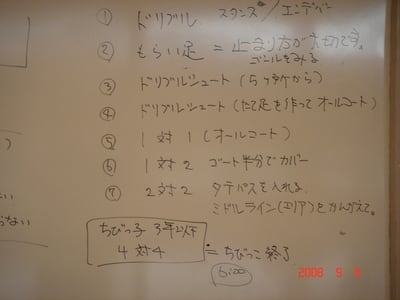 ① ドリブル スタンス/エンデバー
② もらい足 = 止まり方が大切です。
ゴールをみる
③ ドリブルシュート(5ヶ所から)
④ ドリブルシュート(たて足を作ってオールコート)
⑤ 1対1(オールコート)
⑥ 1対2 コート半分でカバー
⑦ 2対2 タテパスを入れる
ミドルライン(エリア)をかんがえて。
ちびっ子 3年以下
4対4
= ちびっこ終了
6:00
らない
2008 5 8